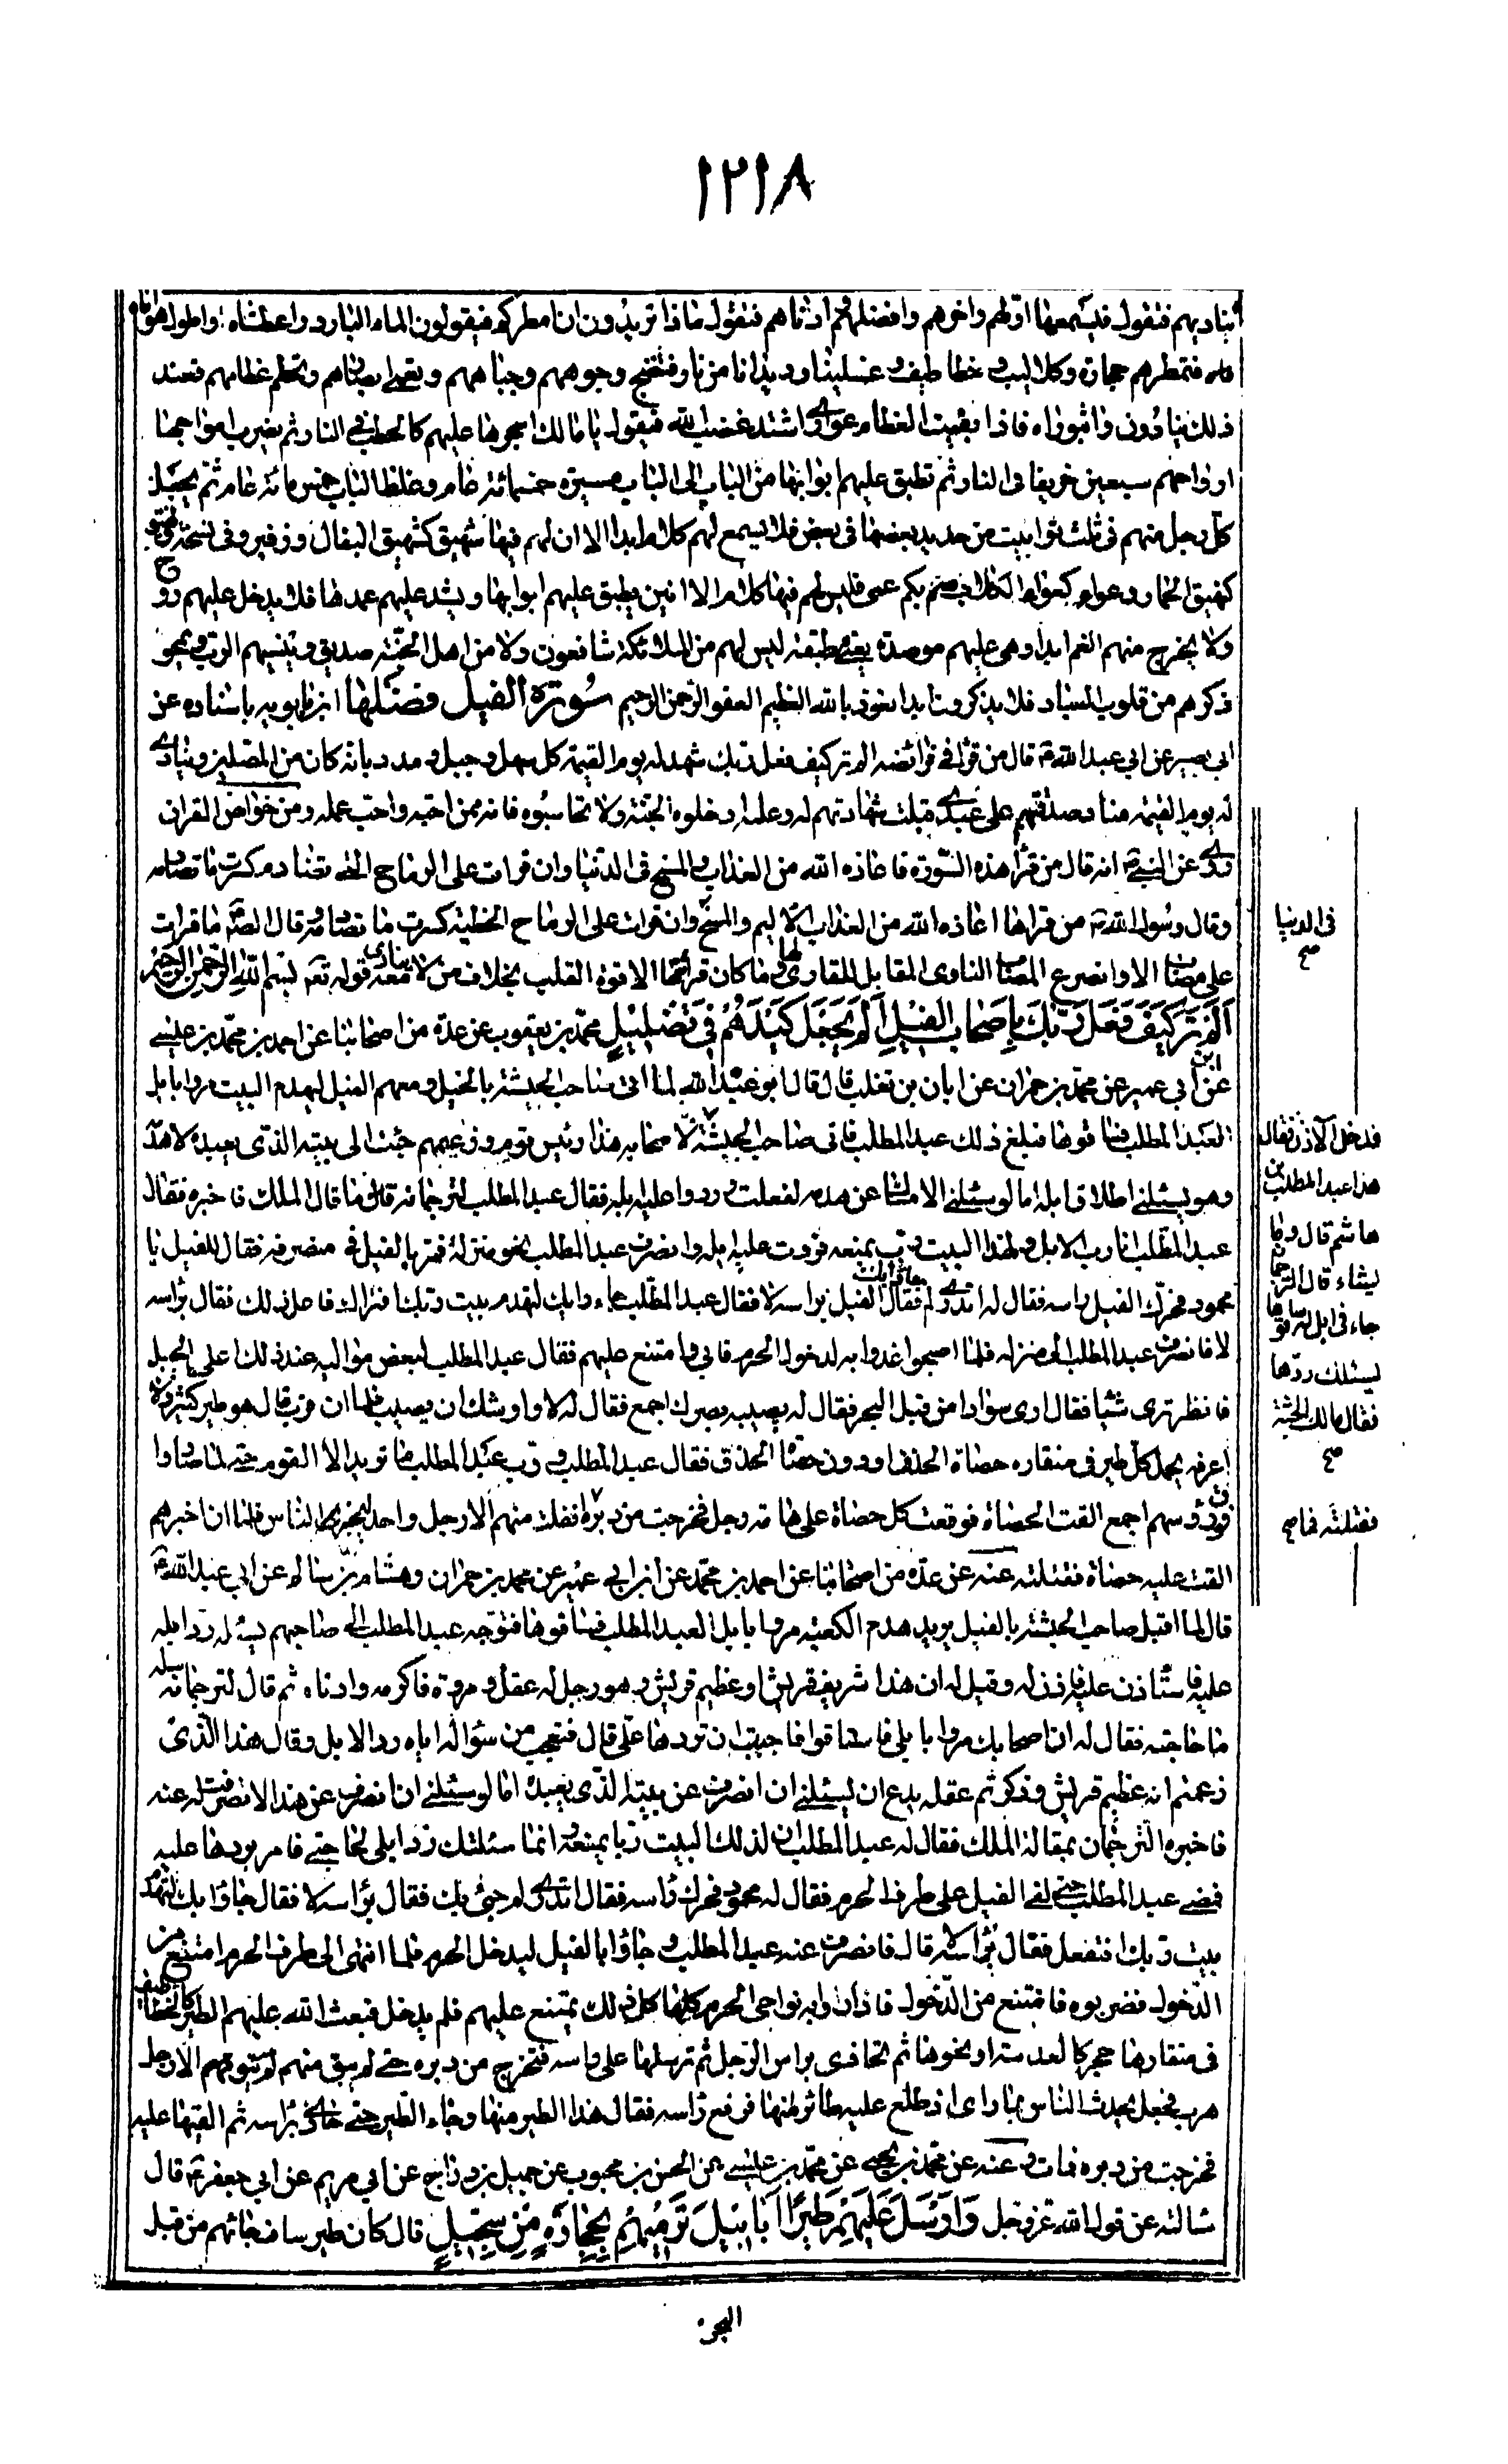 ١٢١٨
يناديهم فتقول فيسمعها اولهم واخرهم وافضلهم وادناهم فتقول ماذا تريدون ان امطركم فيقولون الماء البارد واعطشاه واطول هواناه
فتمطرهم حجارة وكلاليب وخطاطيف وغسلينا وديدانا من نار فتنضج وجوههم وجباههم وتعمى ابصارهم وتحطم عظامهم فعند
ذلك ينادون واثبوراه فاذا بقيت العظام عوارى اشتد غضب الله فيقول يا مالك اسجرها عليهم كالحطب فى النار ثم يضرب امواجها
ارواحهم سبعين خريفا فى النار ثم تطبق عليهم ابوابها من الباب الى الباب مسيرة خمسمائة عام وغلظ الباب خمس مائة عام ثم يجعل
كل رجل منهم فى ثلث توابيت من حديد بعضها فى بعض فلا يسمع لهم كلام ابدا الا ان لهم فيها شهيق كشهيق البغال وزفير وفى نسخة
كنهيق الحمار وعواء كعواء الكلاب صم بكم عمى فليس لهم فيها كلام الا انين يطبق عليهم ابوابها ويشد عليهم عمدها فلا يدخل عليهم روح
ولا يخرج منهم الغم ابدا وهى عليهم موصدة يعنى مطبقة ليس لهم من الملائكة شافعون ولا من اهل الجنة صديق وينسيهم الرب ويمحو
ذكرهم من قلوب العباد فلا يذكرون ابدا نعوذ بالله العظيم الغفور الرحمن الرحيم سورة الفيل وفضلها ابن بابويه باسناده عن
ابى بصير عن ابى عبد الله ع قال من قرأ فى فرائضه الم تر كيف فعل ربك شهد له يوم القيمة كل سهل وجبل ومدر بانه كان من المصلين وينادى
له يوم القيمة مناد صدقتم على عبدى قبلت شهادتهم له وعليه ادخلوه الجنة ولا تحاسبوه فانه ممن احبه واحب عمله ومن خواص القران
روى عن النبى ص انه قال من قرأ هذه السورة اعاذه الله من العذاب والمسخ فى الدنيا وان قرات على الرماح التى تصادم كسرت ما تصادمه
وقال رسول الله ص من قراها اعاذه الله من العذاب الاليم والمسخ وان قرات على الرماح الخطية كسرت ما تصادمه قال الص ع ما قرات
على مصاف الا وانصرع المصاف الثانوى المقابل للقارى لها وما كان قرائتها الا قوة القلب بخلاف من قوله تعم بسم الله الرحمن الرحيم
الم تر كيف فعل ربك باصحاب الفيل الم يجعل كيدهم فى تضليل محمد بن يعقوب عن عدة من اصحابنا عن احمد بن محمد بن عيسى
عن ابن ابى عمير عن محمد بن حمران عن ابان بن تغلب قال قال ابو عبد الله لما اتى صاحب الحبشة بالخيل ومعهم الفيل ليهدم البيت مروا بابل
لعبد المطلب فساقوها فبلغ ذلك عبد المطلب فاتى صاحب الحبشة لاصحابه هذا رئيس قوم وزعيمهم جئت الى بيته الذى يعبده لاهدمه
وهو يسئلنى اطلاق ابله اما لو سئلنى الامساك عن هدمه لفعلت ردوا عليه ابله فقال عبد المطلب لترجمانه قال ما قال الملك فاخبره فقال
عبد المطلب انا رب الابل ولهذا البيت رب يمنعه فردت عليه ابله وانصرف عبد المطلب نحو منزله فمر بالفيل فى منصرفه فقال للفيل يا
محمود فحرك الفيل راسه فقال له اتدرى لم جاؤا بك فقال الفيل براسه لا فقال عبد المطلب جاءوا بك لتهدم بيت ربك افتراك فاعل ذلك فقال براسه
لا فانصرف عبد المطلب الى منزله فلما اصبحوا غدوا به لدخول الحرم فابى وامتنع عليهم فقال عبد المطلب لبعض مواليه عند ذلك اعل الجبل
فانظر ترى شيئا فقال ارى سوادا من قبل البحر فقال له يصيبه بصرك اجمع فقال له لا واوشك ان يصيب فلما ان قرب قال هو طير كثير ولا
اعرفه يحمل كل طير فى منقاره حصاة مثل حصاة الخذف او دون حصاة الخذف فقال عبد المطلب ورب عبد المطلب ما تريد الا القوم حتى لما صاروا
فوق رؤسهم اجمع القت الحصاة فوقعت كل حصاة على هامة رجل فخرجت من دبره فقتلته فما انفلت منهم الا رجل واحد يخبر الناس فلما ان اخبرهم
القت عليه حصاة فقتلته عنه عن عدة من اصحابنا عن احمد بن محمد عن ابن ابى عمير عن محمد بن حمران وهشام بن سالم عن ابى عبد الله ع
قال لما اقبل صاحب الحبشة بالفيل يريد هدم الكعبة مروا بابل لعبد المطلب فساقوها فتوجه عبد المطلب الى صاحبهم يسئله رد ابله
عليه فاستاذن عليه فاذن له وقيل له ان هذا شريف قريش او عظيم قريش وهو رجل له عقل ومروة فاكرمه وادناه ثم قال لترجمانه سله
ما حاجته فقال له ان اصحابك مروا بابلى فاستاقوها فاحببت ان تردها على قال فتعجب من سؤاله اياه رد الابل وقال هذا الذى
زعمتم انه عظيم قريش وذكرتم عقله يدع ان يسئلنى ان انصرف عن بيته الذى يعبده اما لو سئلنى ان انصرف عن هذا لانصرفت له عنه
فاخبره الترجمان بمقالة الملك فقال له عبد المطلب ان لذلك البيت ربا يمنعه وانما سئلتك رد ابلى لحاجتى فامر بردها عليه
فمضى عبد المطلب حتى لقى الفيل على طرف الحرم فقال له محمود فحرك راسه فقال اتدرى لم جئ بك فقال براسه لا فقال جاؤا بك لتهدم
بيت ربك افتفعل فقال براسه لا قال فانصرف عنه عبد المطلب وجاؤا بالفيل ليدخل الحرم فلما انتهى الى طرف الحرم امتنع من
الدخول فضربوه فامتنع من الدخول فاداروا به نواحى الحرم كلها كل ذلك يمتنع عليهم فلم يدخل فبعث الله عليهم الطير كالخطاطيف
فى منقارها حجر كالعدسة او نحوها ثم تحاذى براس الرجل ثم ترسلها على راسه فتخرج من دبره حتى لم يبق منهم الا رجل
هرب فجعل يحدث الناس بما راى اذ طلع عليه طائر منها فرفع راسه فقال هذا الطير منها وجاء الطير حتى حاذى براسه ثم القيها عليه
فخرجت من دبره فمات وعنه عن محمد بن يحيى عن محمد بن عيسى عن الحسن بن محبوب عن جميل بن دراج عن ابى مريم عن ابى جعفر ع قال
سالته عن قول الله عز وجل وارسل عليهم طيرا ابابيل ترميهم بحجارة من سجيل قال كان طير ساف جائهم من قبل
البحر
فى الدنيا
صح
فدخل الآذن فقال
هذا عبد المطلب بن
هاشم قال وما
يشاء قال الترجمان
جاء فى ابل له ساقوها
يسئلك ردها
فقال مالك الحبشة
صح
فقتلته فما صح